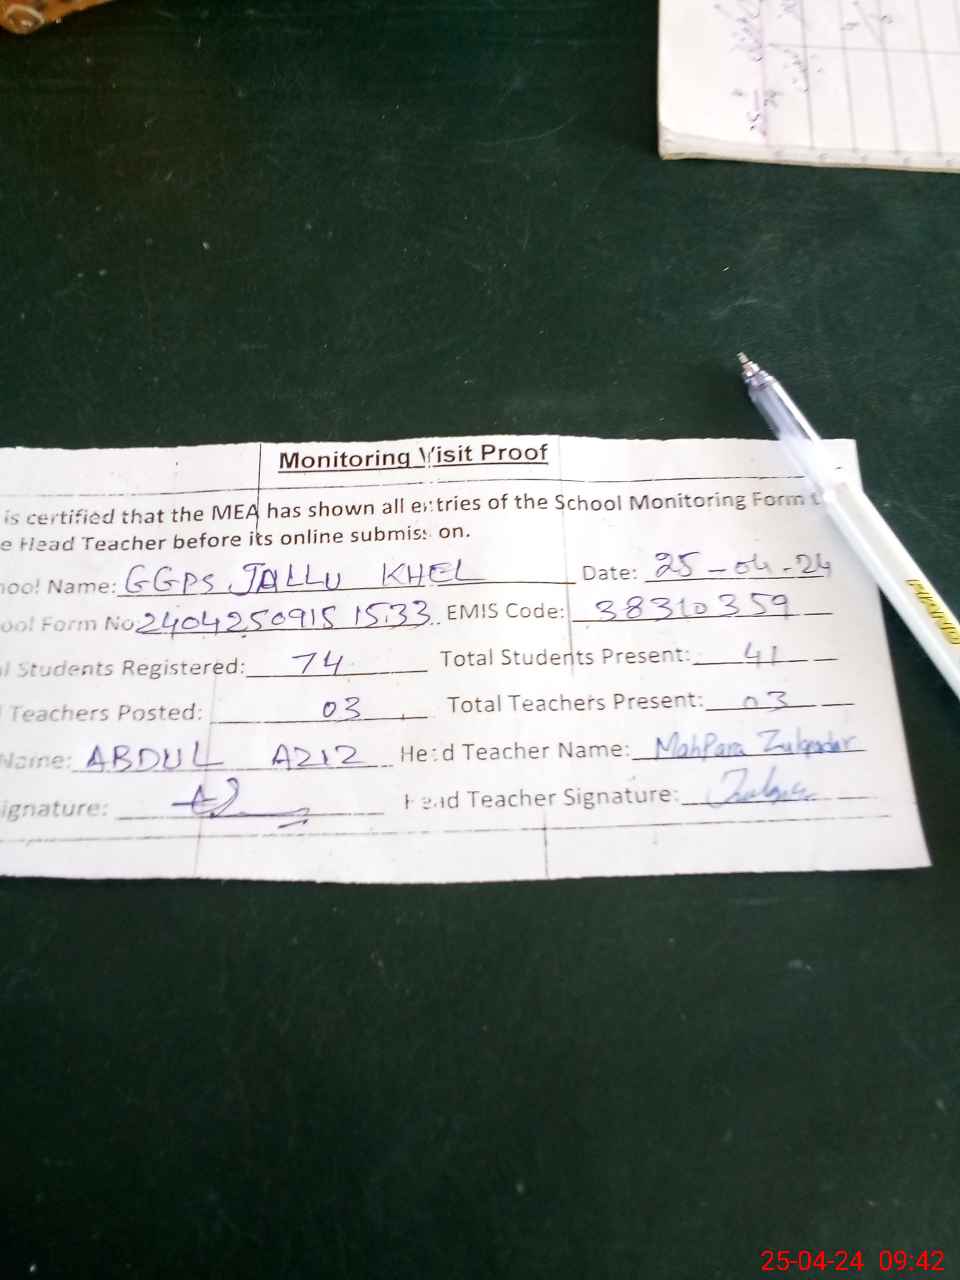 Monitoring Visit Proof
is certified that the MEA has shown all entries of the School Monitoring Form t
e Head Teacher before its online submission.
hool Name: GGPS JALLU KHEL Date: 25-04-24
ool Form No: 24042509151533 EMIS Code: 38310359
l Students Registered: 74 Total Students Present: 41
Teachers Posted: 03 Total Teachers Present: 03
Name: ABDUL AZIZ Head Teacher Name: MahPara Zulqadar
ignature: Head Teacher Signature:
PIANO
25-04-24 09:42